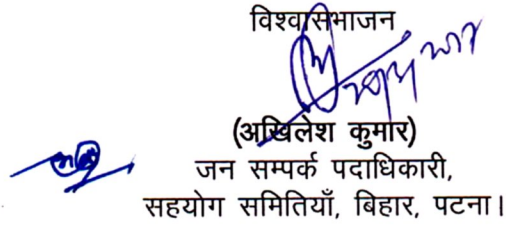 विश्वासभाजन
(अखिलेश कुमार)
जन सम्पर्क पदाधिकारी,
सहयोग समितियाँ, बिहार, पटना।